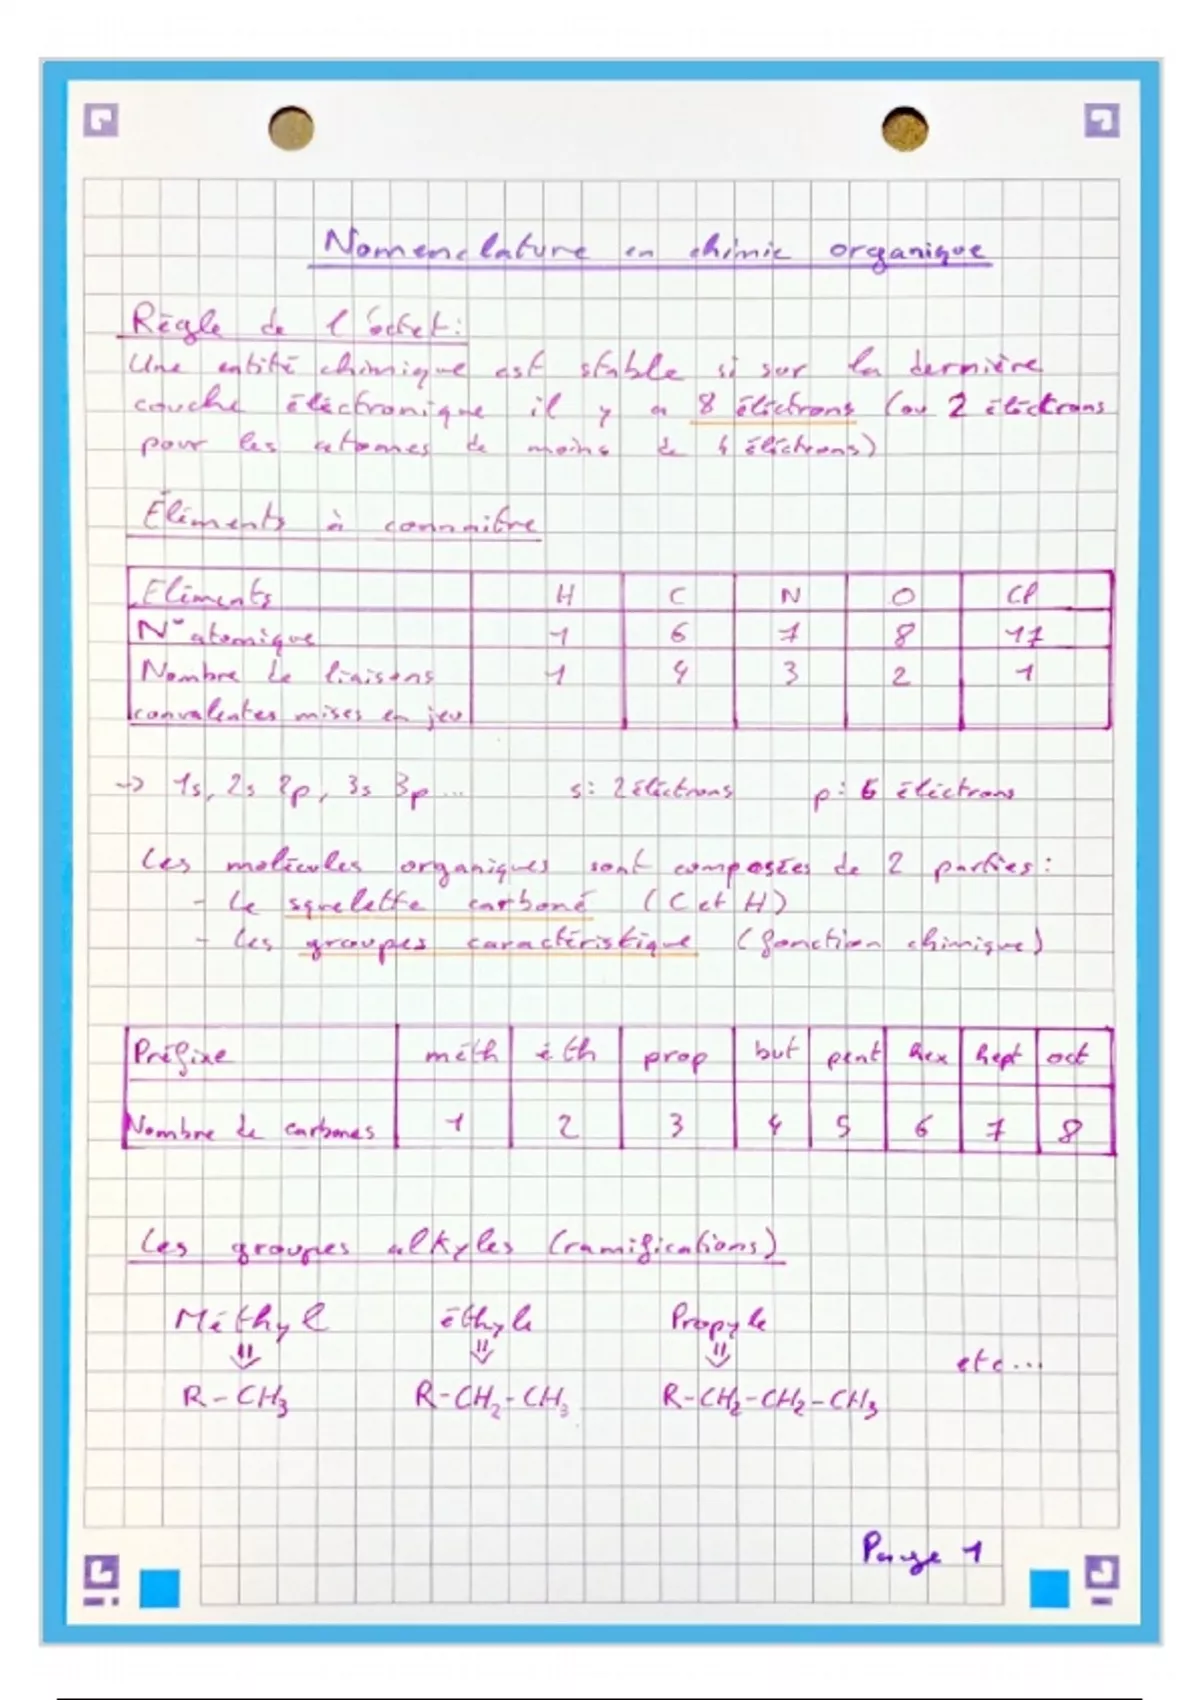 Nomenclature en chimie organique
Règle de l'octet:
Une entité chimique est stable si sur la dernière
couche électronique il y a 8 électrons (ou 2 électrons
pour les atomes de moins de 4 électrons)
Éléments à connnaitre
Eléments H C N O Cl
N° atomique 1 6 7 8 17
Nombre de liaisons 1 4 3 2 1
convalentes mises en jeu
-> 1s, 2s 2p, 3s 3p... s: 2 électrons p: 6 électrons
Les molécules organiques sont composées de 2 parties:
- Le squelette carboné (C et H)
- Les groupes caractéristique (fonction chimique)
Préfixe méth éth prop but pent hex hept oct
Nombre de carbones 1 2 3 4 5 6 7 8
Les groupes alkyles (ramifications)
Méthyl éthyle Propyle
etc...
R-CH3 R-CH2-CH3 R-CH2-CH2-CH3
Page 1